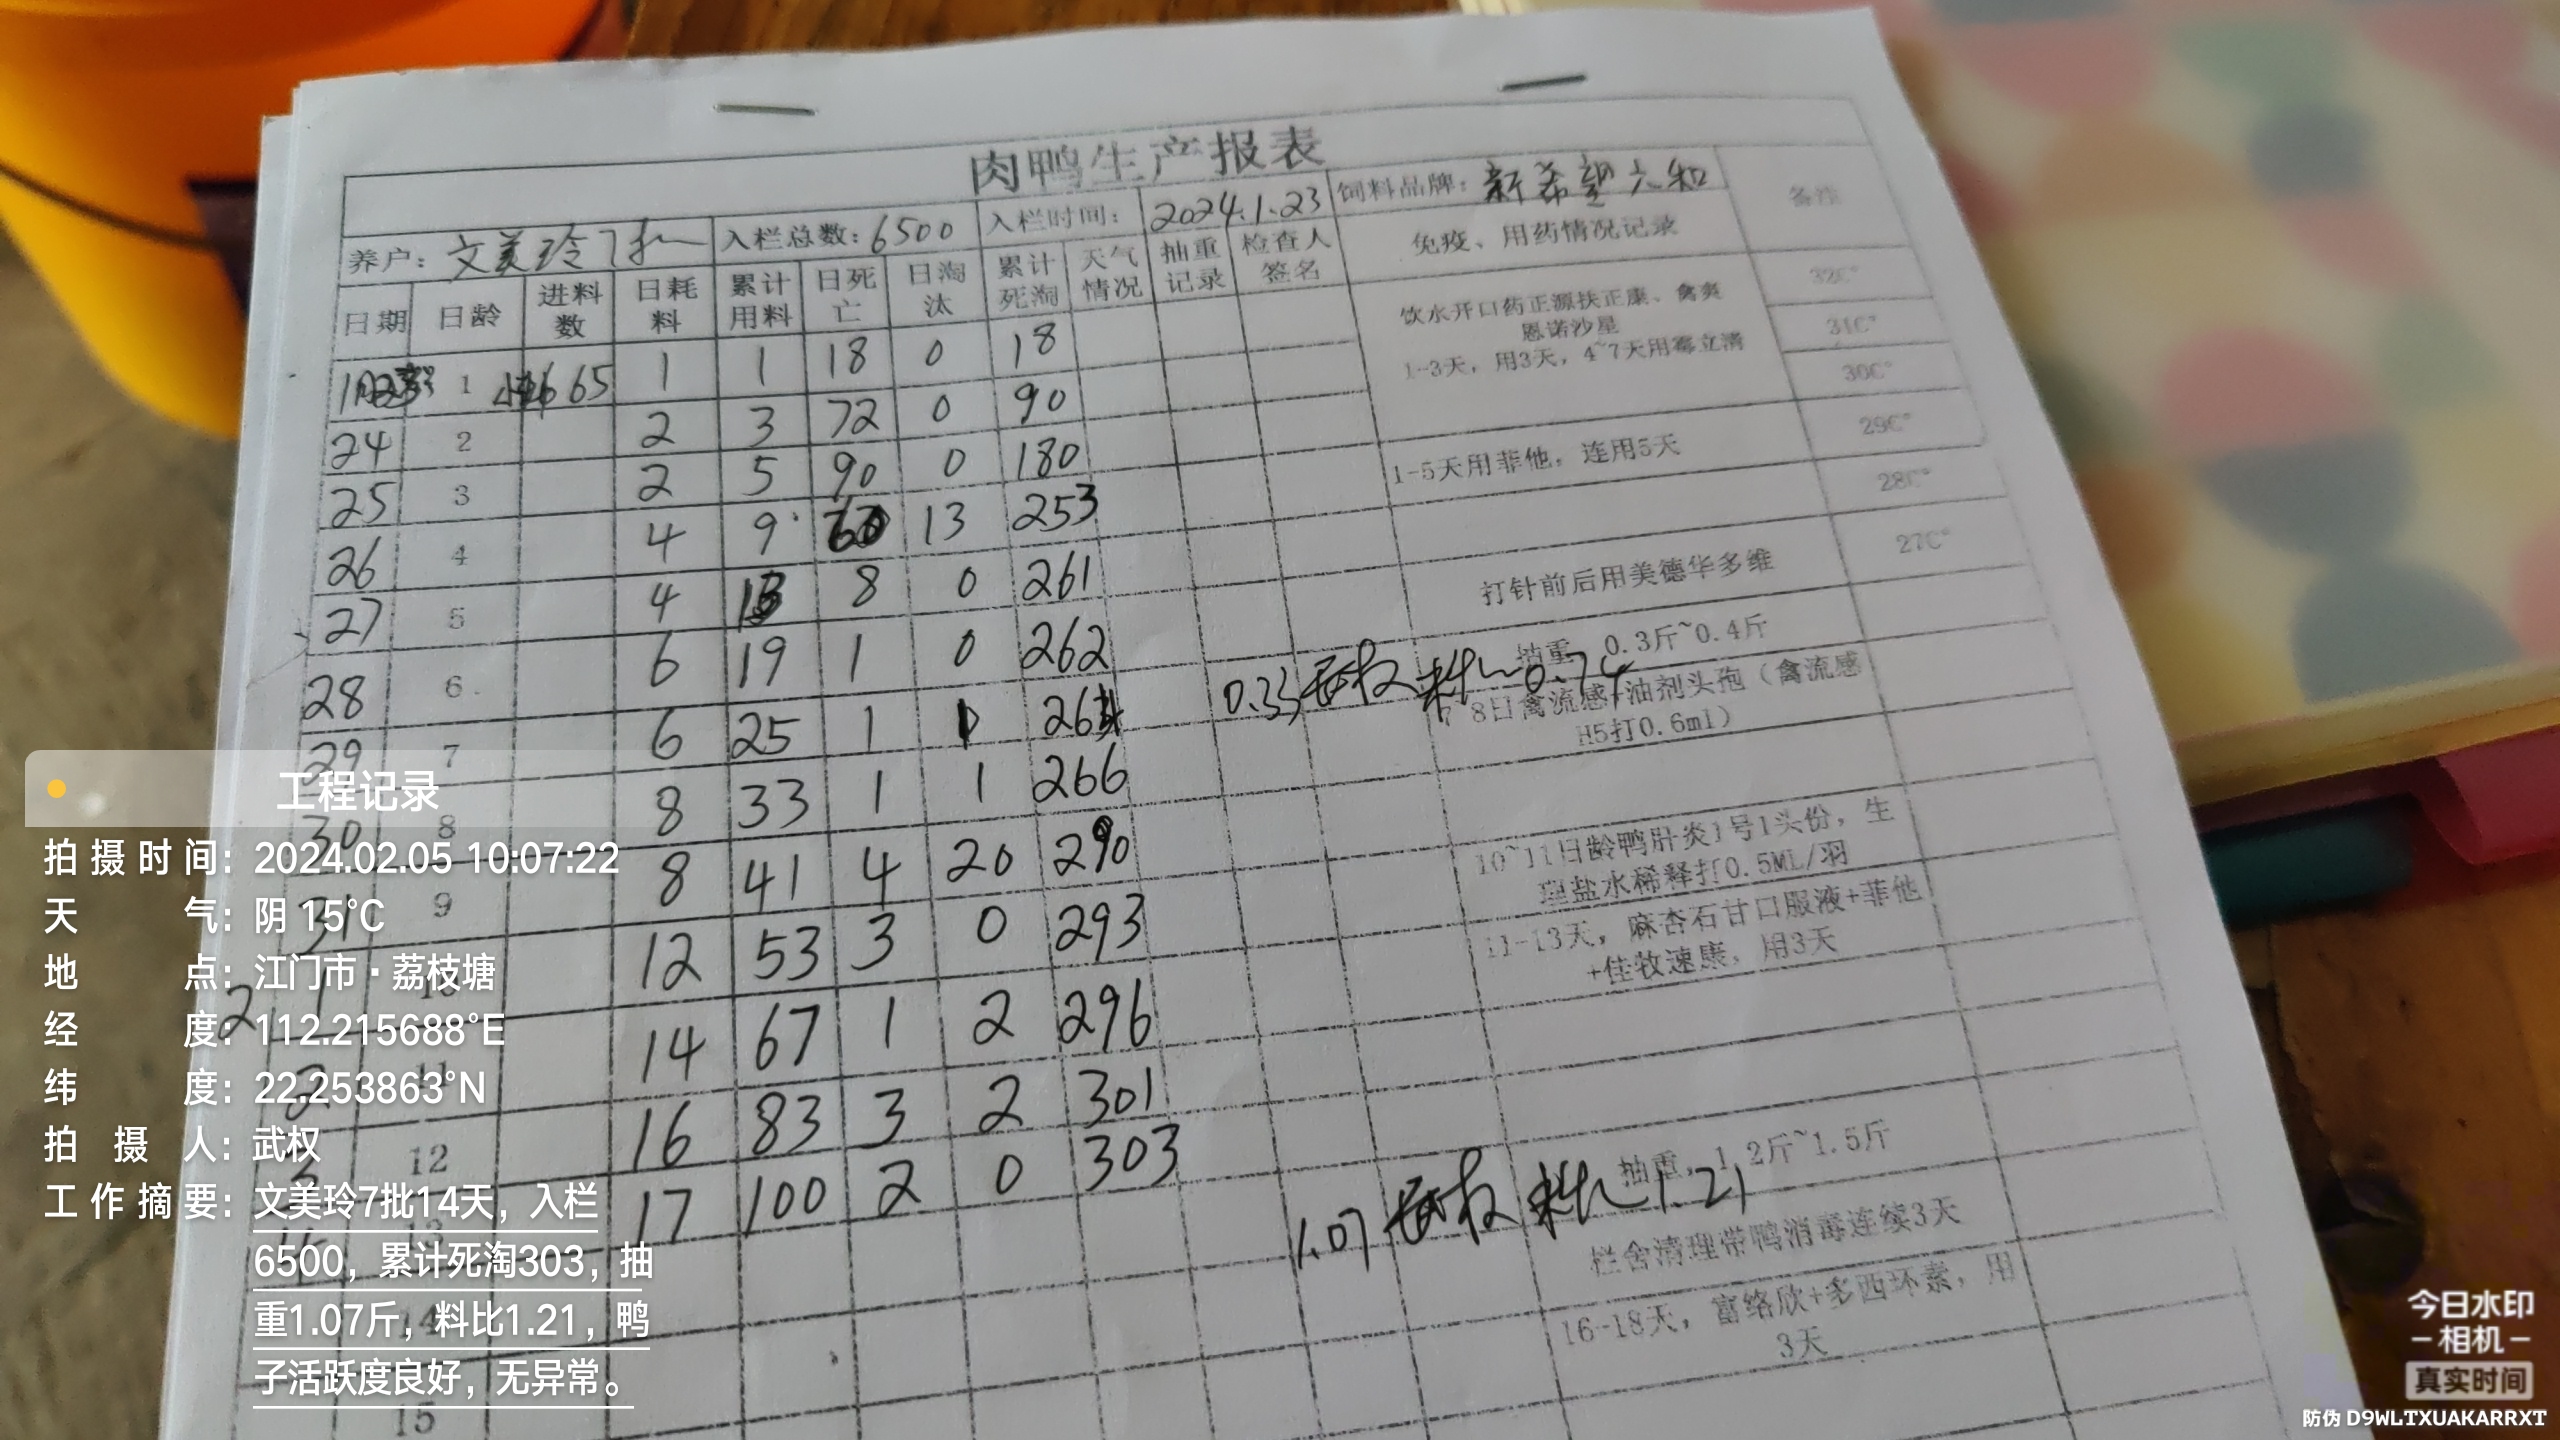 肉鸭生产报表
养户：文美玲7批 入栏总数：6500 入栏时间：2024.1.23 饲料品牌：新希望六和 备注
日期 日龄 进料数 日耗料 累计用料 日死亡 日淘汰 累计死淘 天气情况 抽重记录 检查人签名 免疫、用药情况记录
1 65 1 1 18 0 18
24 2 2 3 72 0 90
25 3 2 5 90 0 180
26 4 4 9 60 13 253
27 5 4 13 8 0 261
28 6 6 19 1 0 262
29 7 6 25 1 1 264
30 8 8 33 1 1 266
31 9 8 41 4 20 290
2 1 10 12 53 3 0 293
2 11 14 67 1 2 296
3 12 16 83 3 2 301
13 17 100 2 0 303
14
15
饮水开口药正源扶正康、禽爽
恩诺沙星
1-3天，用3天，4~7天用霉立清
32C°
31C°
30C°
1-5天用菲他，连用5天
29C°
28C°
打针前后用美德华多维
27C°
抽重，0.3斤~0.4斤
0.33 料比0.74
7-8日禽流感+油剂头孢（禽流感
H5打0.6ml）
10~11日龄鸭肝炎1号1头份，生
理盐水稀释打0.5ML/羽
11-13天，麻杏石甘口服液+菲他
+佳牧速康，用3天
抽重，1.2斤~1.5斤
1.07 料比1.21
栏舍清理带鸭消毒连续3天
16-18天，富络欣+多西环素，用
3天
工程记录
拍摄时间：2024.02.05 10:07:22
天气：阴 15°C
地点：江门市·荔枝塘
经度：112.215688°E
纬度：22.253863°N
拍摄人：武权
工作摘要：文美玲7批14天，入栏
6500，累计死淘303，抽
重1.07斤，料比1.21，鸭
子活跃度良好，无异常。
今日水印
-相机-
真实时间
防伪 D9WLTXUAKARRXT